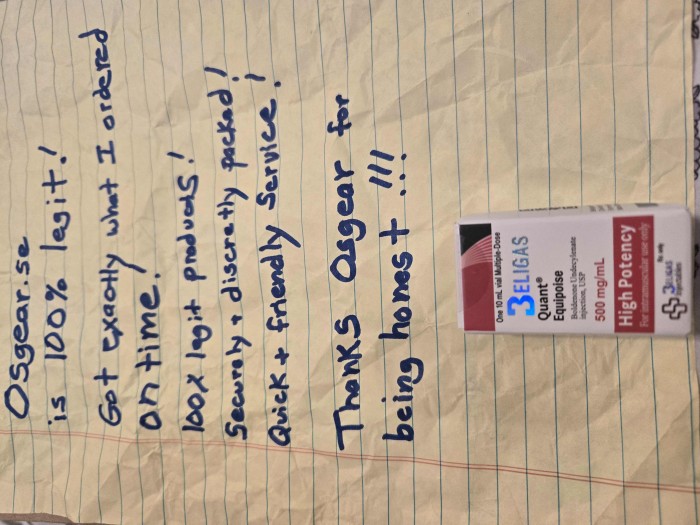 Osgear.se
is 100% legit!
Got exactly what I ordered
on time!
100% legit products!
Securely + discretly packed!
Quick + friendly Service!
Thanks Osgear for
being honest!!!
One 10 mL vial Multiple-Dose
3ELIGAS
Quant®
Equipoise
Boldenone Undecylenate
injection, USP
500 mg/mL
High Potency
For intramuscular use only
Rx only
3ELIGAS